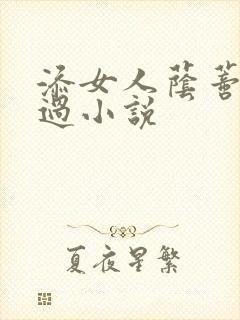 添女人蔭蒂
過小說
夏夜星繁